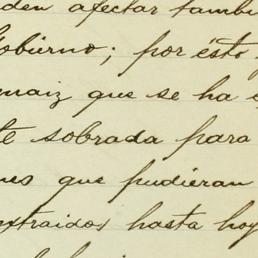 den afectar tambi
Gobierno; por ésto
maiz que se ha
te sobrada para
nes que pudieran
xtraidos hasta hoy